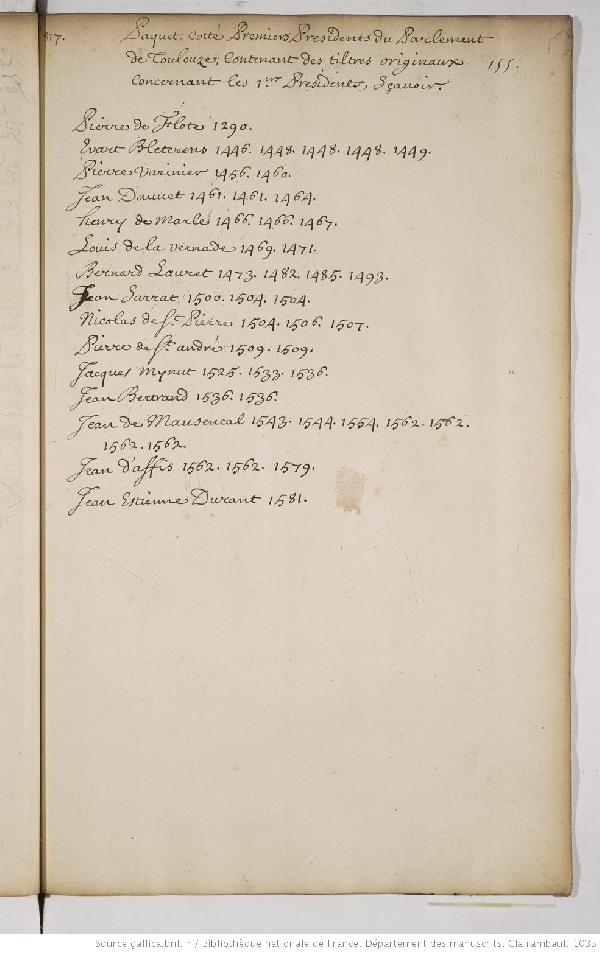 817.
Paquet Cotté Premiers Presidents du Parlement
de Toulouze, Contenant des tiltres originaux
155.
Concernant les 1.ers Presidents, Sçavoir.
Pierre de Flote 1290.
Evart Bleterens 1446. 1448. 1448. 1448. 1449.
Pierre Varinier 1456. 1460.
Jean Dauvet 1461. 1461. 1464.
henry de Marle 1466. 1466. 1467.
Louis de la vernade 1469. 1471.
Bernard Lauret 1473. 1482. 1485. 1493.
Jean Sarrat 1500. 1504. 1504.
Nicolas de St. Pierre 1504. 1506. 1507.
Pierre de St. andré 1509. 1509.
Jacques Mynut 1525. 1533. 1536.
Jean Bertrand 1536. 1536.
Jean de Mausencal 1543. 1544. 1554. 1562. 1562.
1562. 1562.
Jean d'affis 1562. 1562. 1579.
Jean Estienne Durant 1581.
Source gallica.bnf.fr / Bibliothèque nationale de France. Département des manuscrits. Clairambault 1035